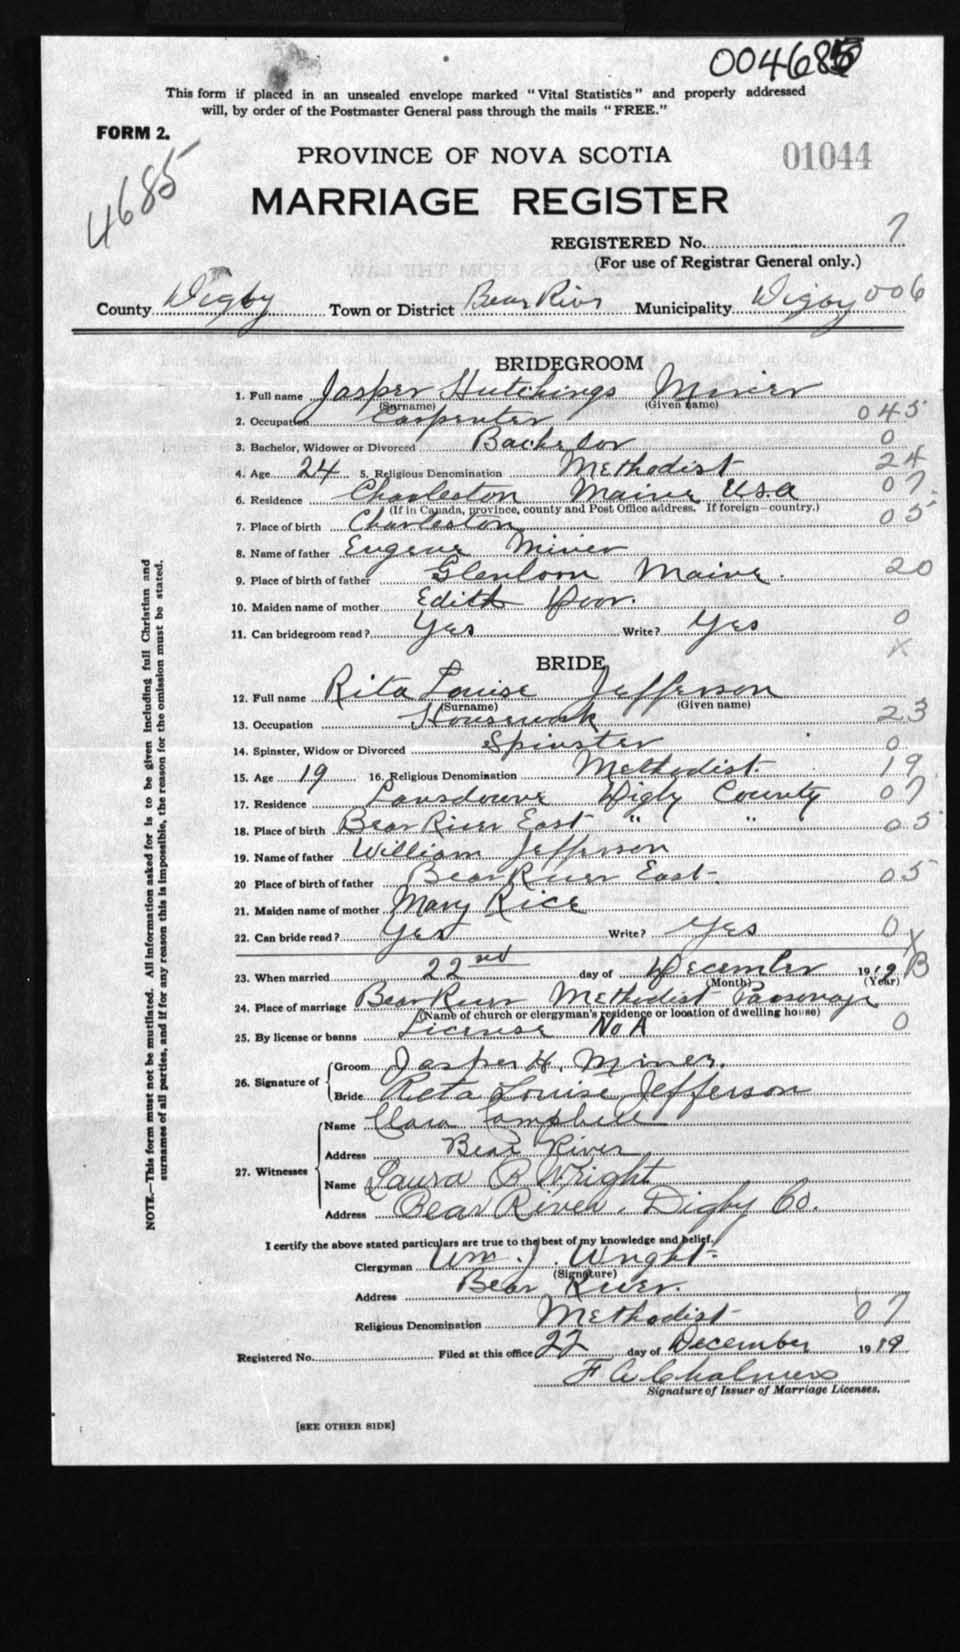 004685
This form if placed in an unsealed envelope marked "Vital Statistics" and properly addressed
will, by order of the Postmaster General pass through the mails "FREE."
FORM 2.
4685
PROVINCE OF NOVA SCOTIA 01044
MARRIAGE REGISTER
REGISTERED No. 7
(For use of Registrar General only.)
County Digby Town or District Bear River Municipality Digby 006
BRIDEGROOM
1. Full name Jasper Hutchings Miner
(Surname) (Given name)
2. Occupation Carpenter 045
3. Bachelor, Widower or Divorced Bachelor 0
4. Age 24 5. Religious Denomination Methodist 24
6. Residence Charleston Maine U.S.A 07
(If in Canada, province, county and Post Office address. If foreign—country.)
7. Place of birth Charleston 05
8. Name of father Eugene Miner
9. Place of birth of father Maine. 20
10. Maiden name of mother Edith
11. Can bridegroom read? Yes Write? Yes 0
X
BRIDE
12. Full name Rita Louise Jefferson
(Surname) (Given name)
13. Occupation Housework 23
14. Spinster, Widow or Divorced Spinster 0
15. Age 19 16. Religious Denomination Methodist. 19
17. Residence Lansdowne Digby County 07
18. Place of birth Bear River East " " 05
19. Name of father William Jefferson
20 Place of birth of father Bear River East. 05
21. Maiden name of mother Mary Rice
22. Can bride read? Yes Write? Yes 0
X
23. When married 22nd day of December 1919 B
(Month) (Year)
24. Place of marriage Bear River Methodist Parsonage
(Name of church or clergyman's residence or location of dwelling house)
25. By license or banns License No A 0
26. Signature of
Groom Jasper H. Miner.
Bride Reta Louise Jefferson
27. Witnesses
Name Clara Campbell
Address Bear River
Name Laura B Wright
Address Bear River, Digby Co.
I certify the above stated particulars are true to the best of my knowledge and belief.
Clergyman Wm. J. Wright.
(Signature)
Address Bear River.
Religious Denomination Methodist 07
Registered No. Filed at this office 22 day of December 1919
F A Chalmers
Signature of Issuer of Marriage Licenses.
[SEE OTHER SIDE]
NOTE.—This form must not be mutilated. All information asked for is to be given including full Christian and
surnames of all parties, and if for any reason this is impossible, the reason for the omission must be stated.